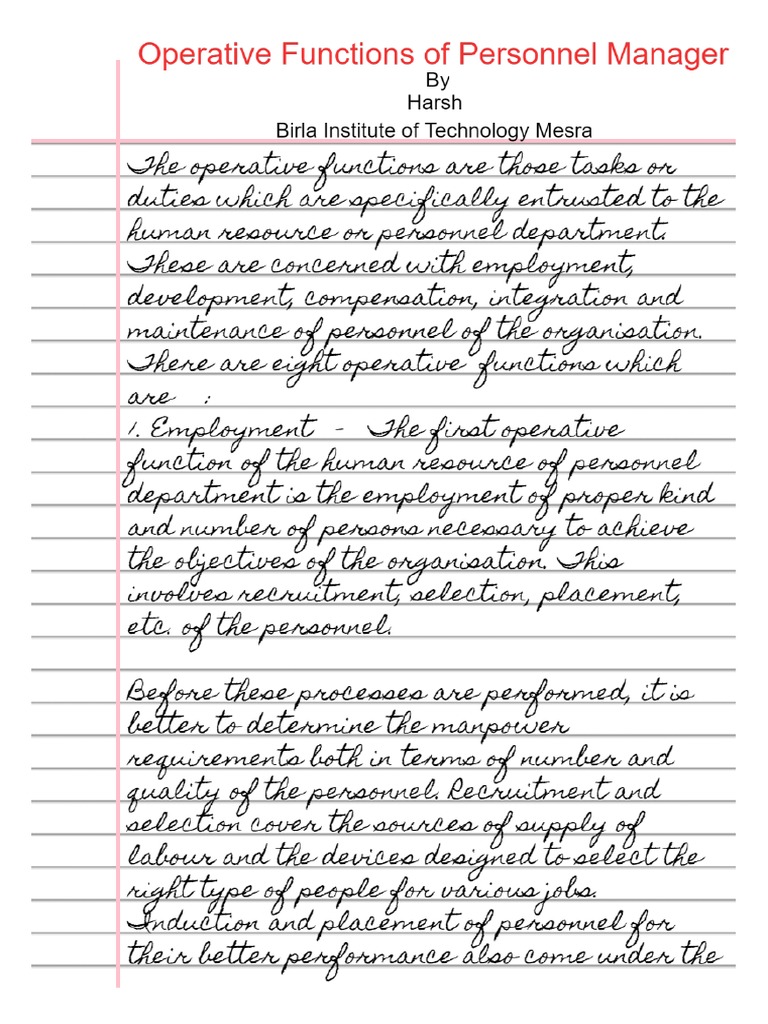 Operative Functions of Personnel Manager
By
Harsh
Birla Institute of Technology Mesra
The operative functions are those tasks or
duties which are specifically entrusted to the
human resource or personnel department.
These are concerned with employment,
development, compensation, integration and
maintenance of personnel of the organisation.
There are eight operative functions which
are :
1. Employment - The first operative
function of the human resource of personnel
department is the employment of proper kind
and number of persons necessary to achieve
the objectives of the organisation. This
involves recruitment, selection, placement,
etc. of the personnel.
Before these processes are performed, it is
better to determine the manpower
requirements both in terms of number and
quality of the personnel. Recruitment and
selection cover the sources of supply of
labour and the devices designed to select the
right type of people for various jobs.
Induction and placement of personnel for
their better performance also come under the